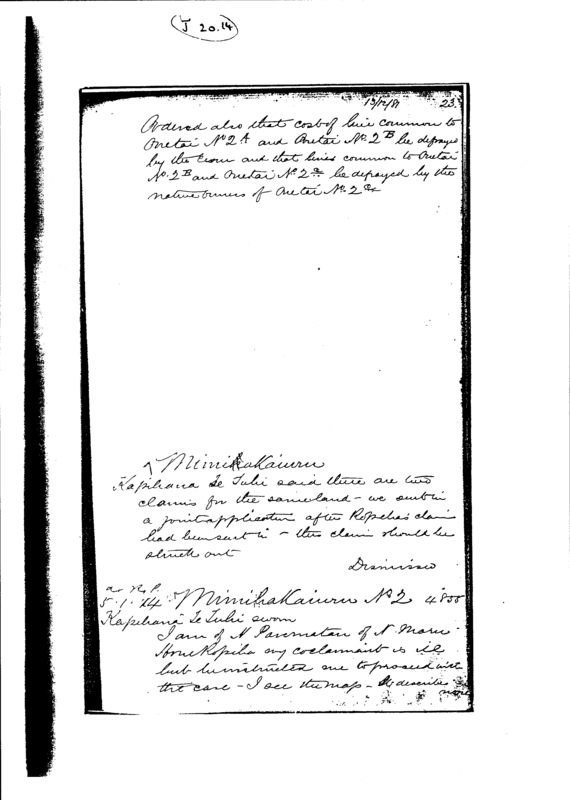 J 20.14
13/12/81 23.
Ordered also that cost of line common to
Onetai No 2A and Onetai No 2B be defrayed
by the Crown and that lines common to Onetai
No. 2B and Onetai No 2 be defrayed by the
native owners of Onetai No. 2
Mimihakaiuru
Kapihana Te Tuhi said there are two
claims for the same land - we sent in
a joint application after Ropiha's claim
had been sent in - this claim should be
struck out
Dismissed
5.1.24 Mimihakaiuru No 2 4800
Kapihana Te Tuhi sworn
I am of N of N. Maru
Hone Ropiha my coclaimant is ill
but he instructed me to proceed with
the case - I see the map - describe
more